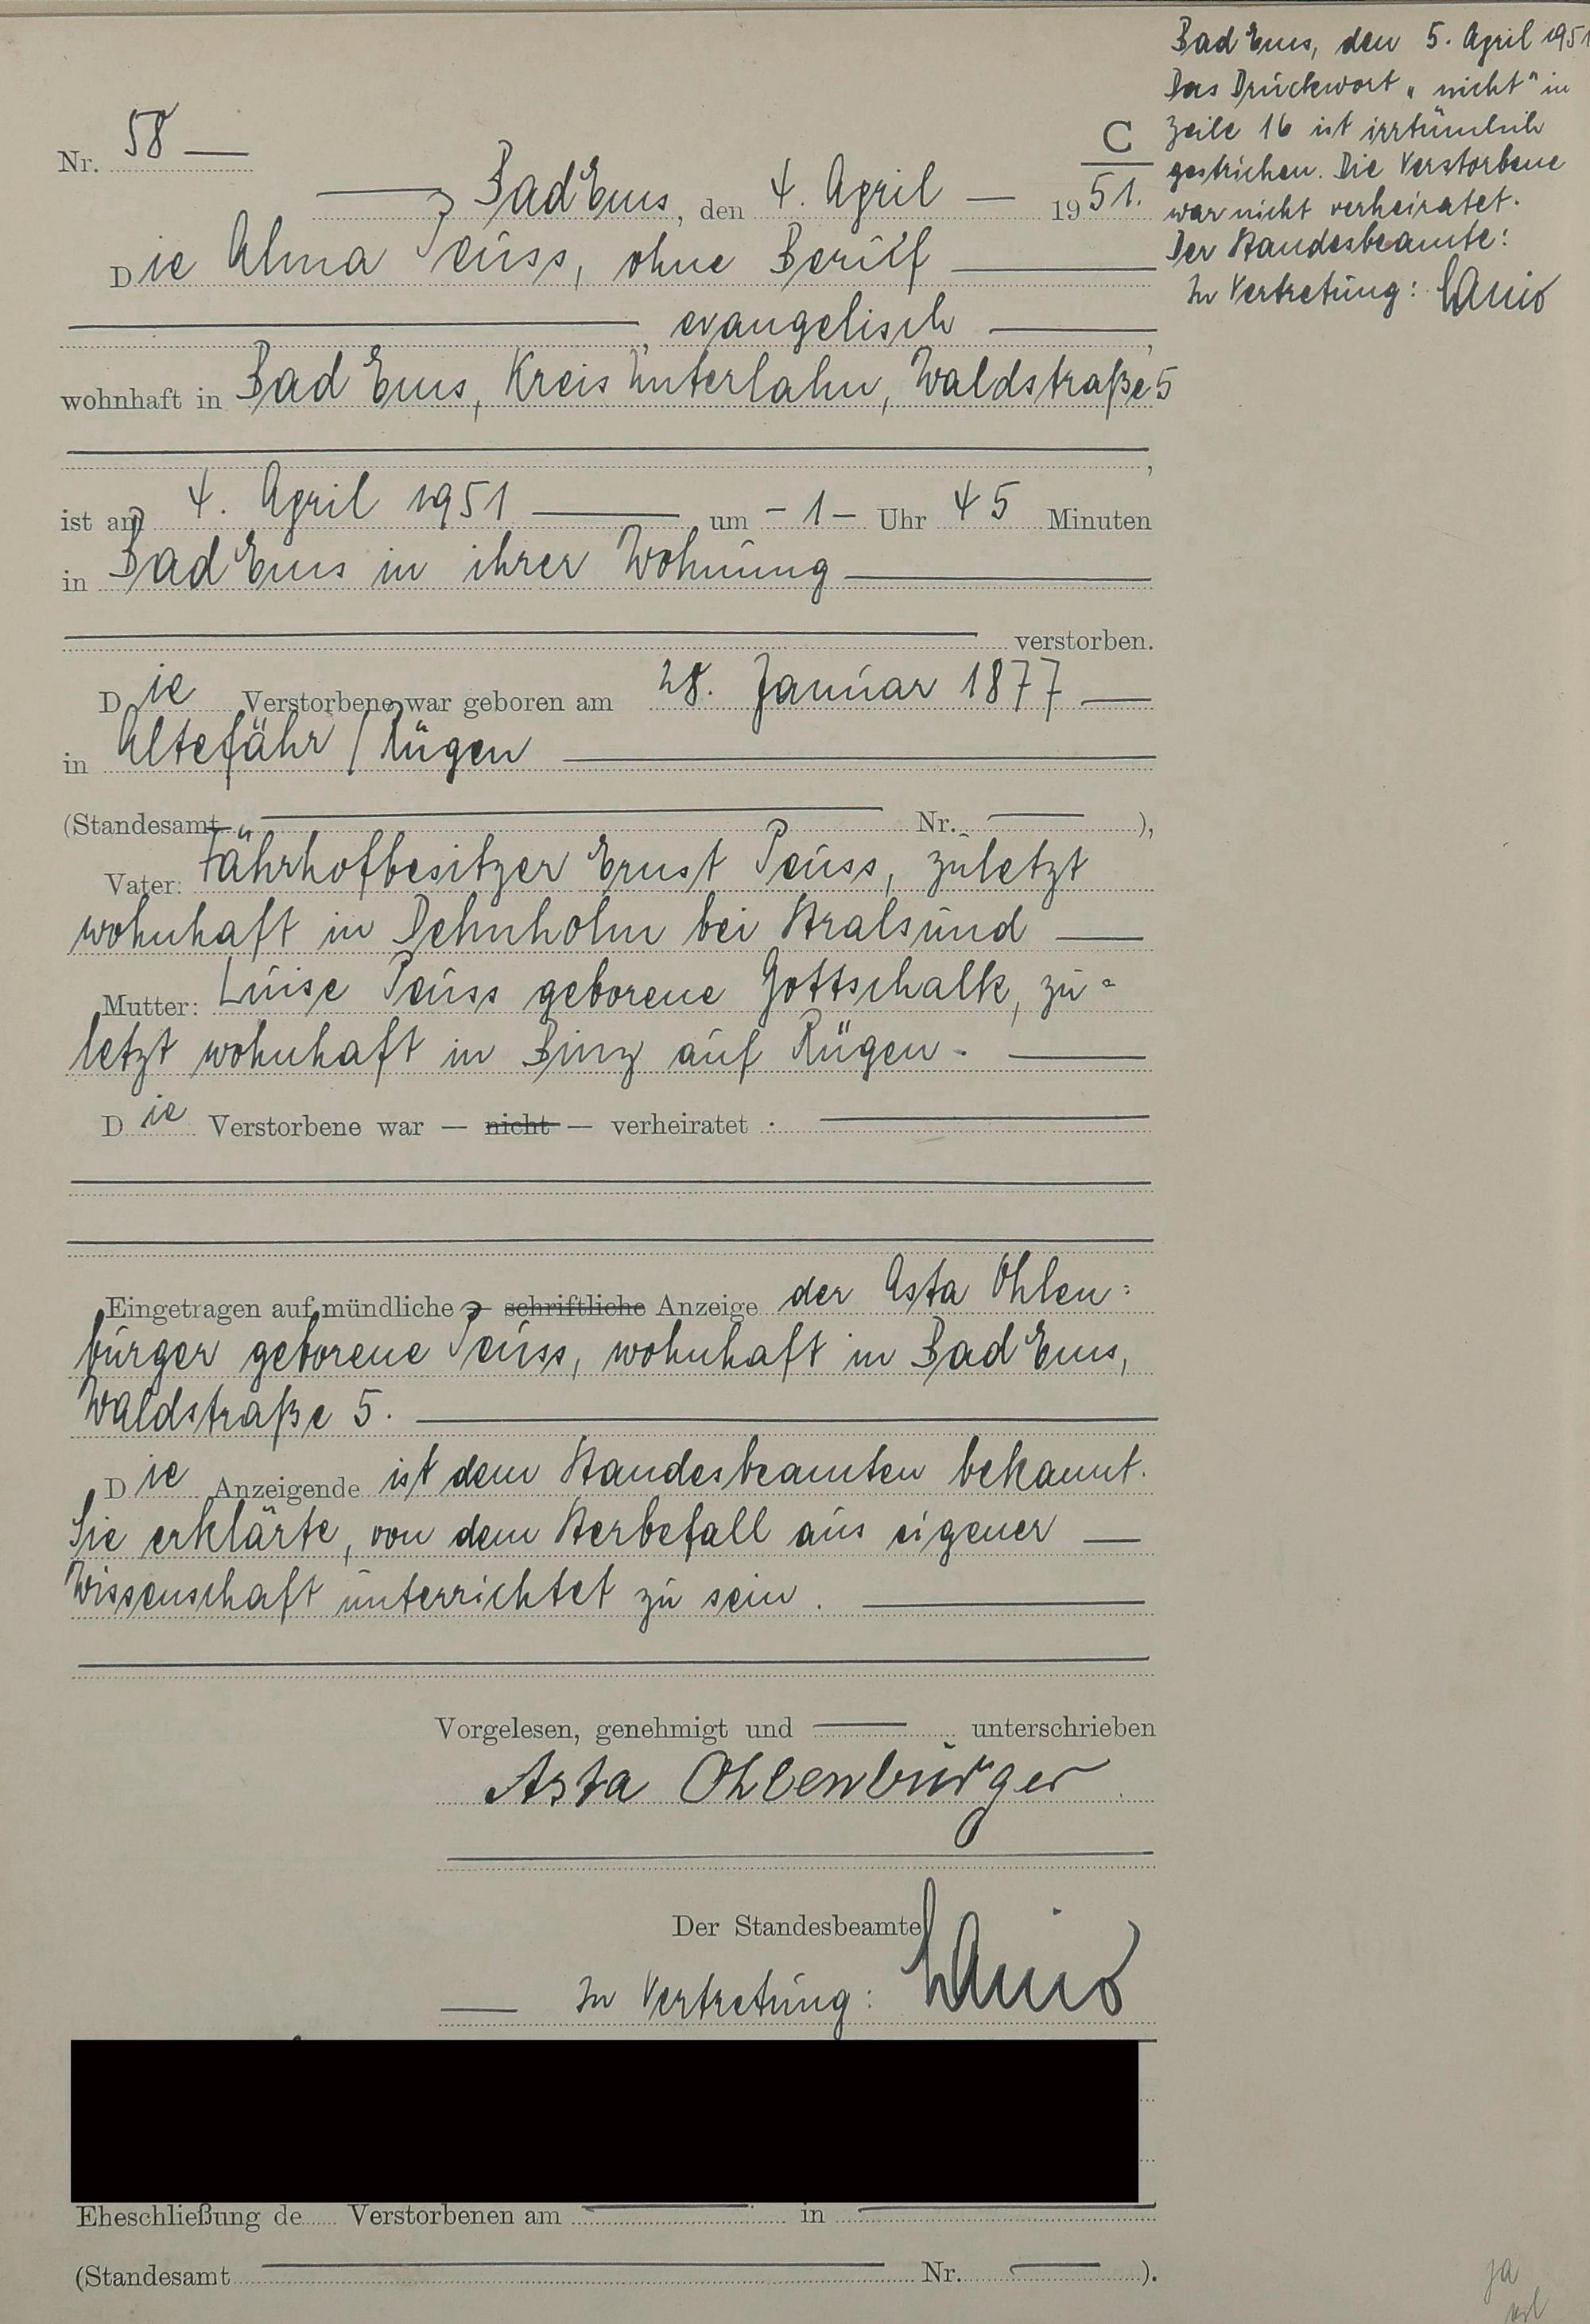 Nr. 58
C
Bad Ems, den 4. April 1951.
Die Alma Peuss, ohne Beruf
, evangelisch ,
wohnhaft in Bad Ems, Kreis Unterlahn, Waldstraße 5
,
ist am 4. April 1951 um - 1 - Uhr 45 Minuten
in Bad Ems in ihrer Wohnung
verstorben.
Die Verstorbene war geboren am 28. Januar 1877
in Altefähr / Rügen
(Standesamt Nr. ),
Vater: Fährhofbesitzer Ernst Peuss, zuletzt
wohnhaft in Dehnholm bei Stralsund
Mutter: Luise Peuss geborene Gottschalk, zu=
letzt wohnhaft in Binz auf Rügen.
Die Verstorbene war — nicht — verheiratet .
Eingetragen auf mündliche — schriftliche Anzeige der Asta Ohlen=
burger geborene Peuss, wohnhaft in Bad Ems,
Waldstraße 5.
Die Anzeigende ist dem Standesbeamten bekannt.
Sie erklärte, von dem Sterbefall aus eigener
Wissenschaft unterrichtet zu sein.
Vorgelesen, genehmigt und unterschrieben
Asta Ohlenburger
Der Standesbeamte
In Vertretung:
Eheschließung de Verstorbenen am in
(Standesamt Nr. ).
Bad Ems, den 5. April 1951
Das Druckwort „nicht" in
Zeile 16 ist irrtümlich
gestrichen. Die Verstorbene
war nicht verheiratet.
Der Standesbeamte:
In Vertretung:
ja